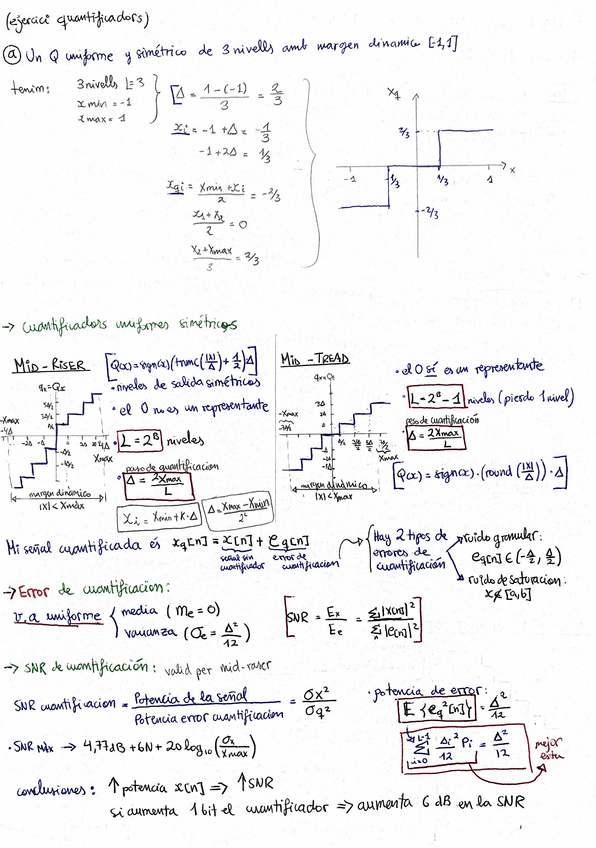 (ejercici quantificadors)
ⓐ Un Q uniforme y simétrico de 3 nivells amb margen dinamico [-1,1]
tenim: 3 nivells L=3
x min = -1
x max = 1
Δ = 1-(-1) / 3 = 2/3
xi = -1 + Δ = -1/3
-1+2Δ = 1/3
xqi = xmin + xi / 2 = -2/3
x1 + x2 / 2 = 0
x2 + xmax / 3 = 2/3
xq
2/3
-1 -1/3 1/3 1 x
-2/3
→ Cuantificadors uniformes simétricos
MID-RISER
[Q(x) = sign(x)(trunc(|x|/Δ) + 1/2)Δ]
qx = Qx
• niveles de salida simétricos
• el 0 no es un representante
• L = 2^B niveles
paso de quantificacion
• Δ = 2Xmax / L
xi = Xmin + K·Δ
Δ = Xmax - Xmin / 2^B
margen dinámico
|x| < Xmáx
MID-TREAD
• el 0 sí es un representante
• L = 2^B - 1 niveles (pierdo 1 nivel)
paso de cuantificación
Δ = 2Xmax / L
[Q(x) = sign(x)·(round(|x|/Δ))·Δ]
margen dinamico
|x| < Xmax
Mi señal cuantificada és xq[n] = x[n] + eq[n]
señal sin cuantificador
error de cuantificacion
Hay 2 tipos de errores de cuantificación
ruido granular:
eq[n] ∈ (-Δ/2, Δ/2)
ruido de saturacion:
x ∉ [a,b]
→ Error de cuantificacion:
v.a uniforme
media (me = 0)
varianza (σe = Δ²/12)
[SNR = Ex/Ee = Σ|x[n]|² / Σ|e[n]|²]
→ SNR de cuantificación: valid per mid-raser
SNR cuantificacion = Potencia de la señal / Potencia error cuantificacion = σx² / σq²
• potencia de error:
E {eq²[n]} = Δ²/12
L-1 Σ i=0 Δi²/12 Pi = Δ²/12
mejor esta
• SNR máx → 4,77dB + 6N + 20 log10 (σx / Xmax)
conclusiones: ↑ potencia x[n] => ↑ SNR
si aumenta 1 bit el cuantificador => aumenta 6 dB en la SNR